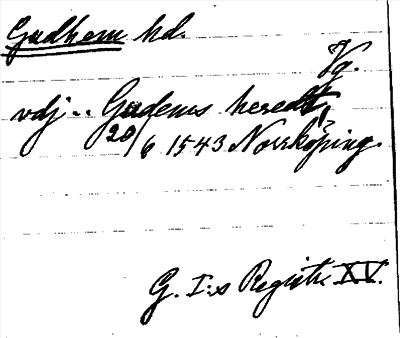 Gudhem hd.
Vg.
vdj.. Gudems heredt,
20/6 1543 Norrköping.
G. I:s Registr. XV.